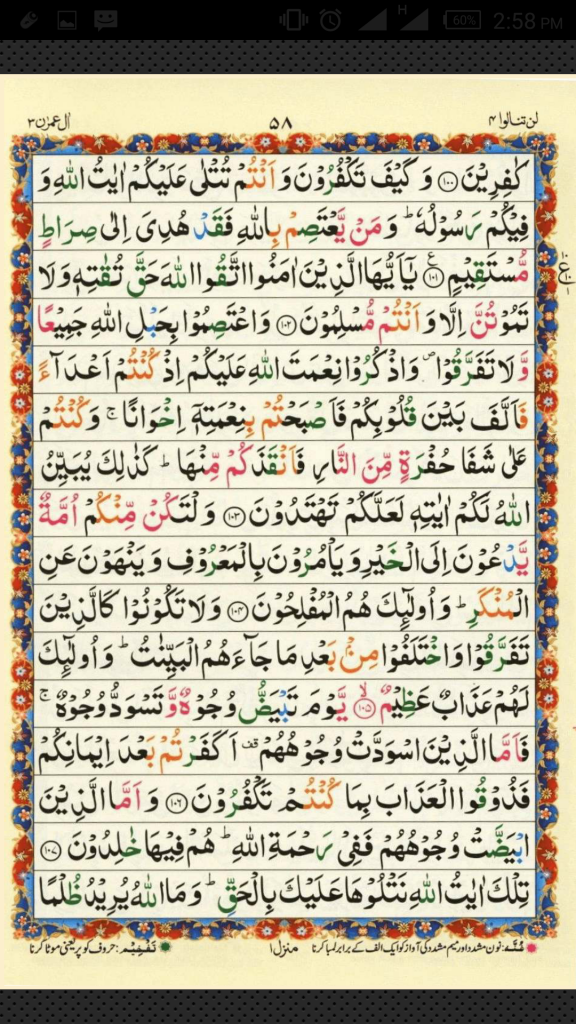 H 60% 2:58 PM
لن تنالوا ۴ ۵۸ اٰل عمرٰن ۳
كٰفِرِيْنَ ۝۱۰۰ وَ كَيْفَ تَكْفُرُوْنَ وَ اَنْتُمْ تُتْلٰى عَلَيْكُمْ اٰيٰتُ اللّٰهِ وَ
فِيْكُمْ رَسُوْلُهٗ ؕ وَ مَنْ يَّعْتَصِمْ بِاللّٰهِ فَقَدْ هُدِىَ اِلٰى صِرَاطٍ
مُّسْتَقِيْمٍ ۝۱۰۱ ع يٰۤاَيُّهَا الَّذِيْنَ اٰمَنُوا اتَّقُوا اللّٰهَ حَقَّ تُقٰتِهٖ وَ لَا
تَمُوْتُنَّ اِلَّا وَ اَنْتُمْ مُّسْلِمُوْنَ ۝۱۰۲ وَ اعْتَصِمُوْا بِحَبْلِ اللّٰهِ جَمِيْعًا
وَّ لَا تَفَرَّقُوْا ۪ وَ اذْكُرُوْا نِعْمَتَ اللّٰهِ عَلَيْكُمْ اِذْ كُنْتُمْ اَعْدَآءً
فَاَلَّفَ بَيْنَ قُلُوْبِكُمْ فَاَصْبَحْتُمْ بِنِعْمَتِهٖۤ اِخْوَانًا ۚ وَ كُنْتُمْ
عَلٰى شَفَا حُفْرَةٍ مِّنَ النَّارِ فَاَنْقَذَكُمْ مِّنْهَا ؕ كَذٰلِكَ يُبَيِّنُ
اللّٰهُ لَكُمْ اٰيٰتِهٖ لَعَلَّكُمْ تَهْتَدُوْنَ ۝۱۰۳ وَ لْتَكُنْ مِّنْكُمْ اُمَّةٌ
يَّدْعُوْنَ اِلَى الْخَيْرِ وَ يَاْمُرُوْنَ بِالْمَعْرُوْفِ وَ يَنْهَوْنَ عَنِ
الْمُنْكَرِ ؕ وَ اُولٰٓئِكَ هُمُ الْمُفْلِحُوْنَ ۝۱۰۴ وَ لَا تَكُوْنُوْا كَالَّذِيْنَ
تَفَرَّقُوْا وَ اخْتَلَفُوْا مِنْۢ بَعْدِ مَا جَآءَهُمُ الْبَيِّنٰتُ ؕ وَ اُولٰٓئِكَ
لَهُمْ عَذَابٌ عَظِيْمٌ ۝۱۰۵ ۙ يَّوْمَ تَبْيَضُّ وُجُوْهٌ وَّ تَسْوَدُّ وُجُوْهٌ ۚ
فَاَمَّا الَّذِيْنَ اسْوَدَّتْ وُجُوْهُهُمْ ۫ اَكَفَرْتُمْ بَعْدَ اِيْمَانِكُمْ
فَذُوْقُوا الْعَذَابَ بِمَا كُنْتُمْ تَكْفُرُوْنَ ۝۱۰۶ وَ اَمَّا الَّذِيْنَ
ابْيَضَّتْ وُجُوْهُهُمْ فَفِىْ رَحْمَةِ اللّٰهِ ؕ هُمْ فِيْهَا خٰلِدُوْنَ ۝۱۰۷
تِلْكَ اٰيٰتُ اللّٰهِ نَتْلُوْهَا عَلَيْكَ بِالْحَقِّ ؕ وَ مَا اللّٰهُ يُرِيْدُ ظُلْمًا
غُنَّه: نون مشدد اور میم مشدد کی آواز کو ایک الف کے برابر لمبا کرنا منزل ۱ تفخیم: حروف کو پُر یعنی موٹا کرنا